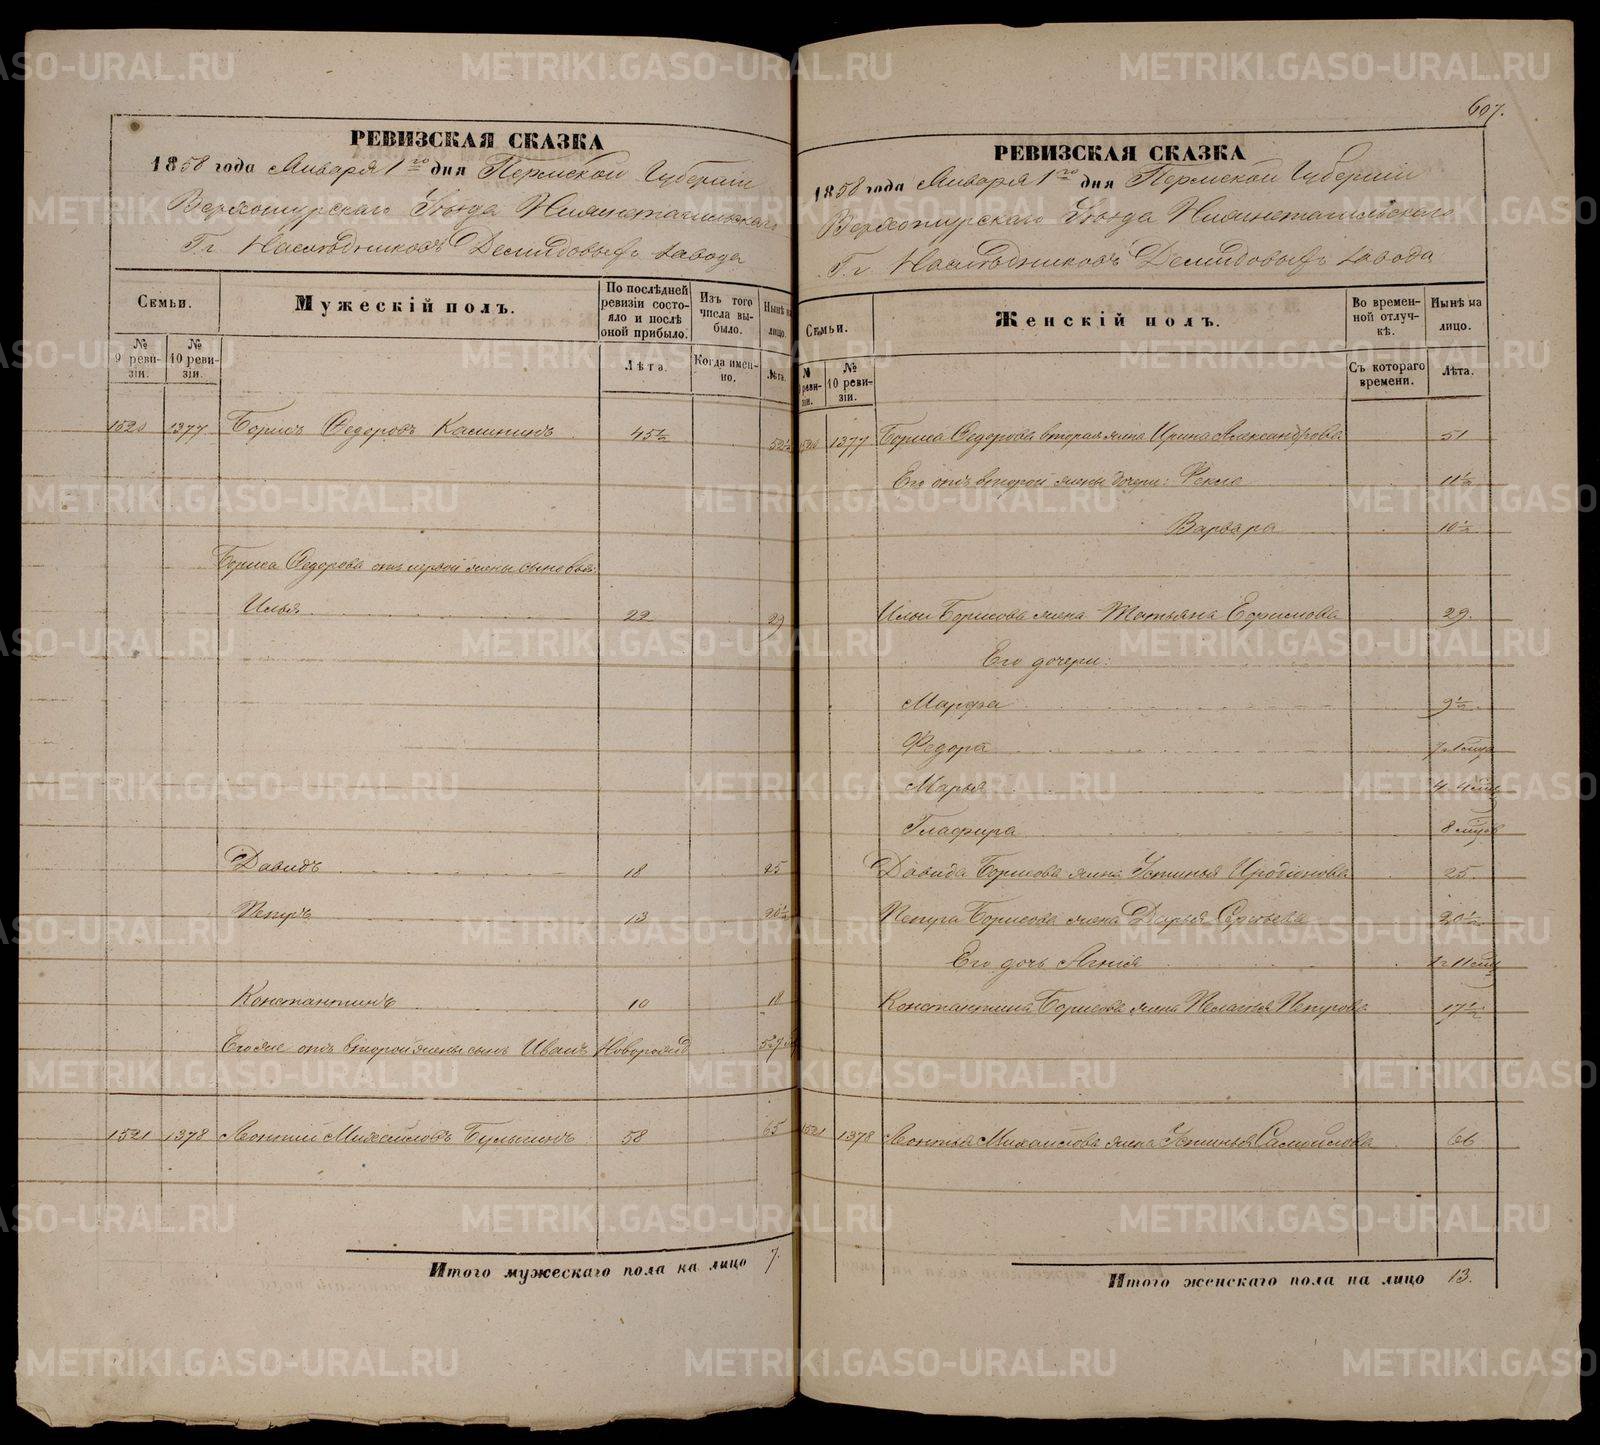 РЕВИЗСКАЯ СКАЗКА
1858 года Января 1го дня Пермской Губернии
Верхотурскаго Уѣзда Нижнетагильскаго
Г.г Наслѣдниковъ Демидовыхъ завода
Семьи.
Мужескій полъ.
По послѣдней ревизіи состояло и послѣ оной прибыло.
Изъ того числа выбыло.
Нынѣ на лицо.
№ 9 ревизіи.
№ 10 ревизіи.
Лѣта.
Когда именно.
Лѣта.
1520 1377 Борисъ Ѳедоровъ Калининъ 45½ 52½
Бориса Ѳедорова отъ первой жены сыновья:
Илья 22 29
Давидъ 18 25
Петръ 13 20½
Константинъ 10 18
Его же отъ второй жены сынъ Иванъ Новорожд
1521 1378 Леонтій Михайловъ 58 65
Итого мужескаго пола на лицо 7.
607.
РЕВИЗСКАЯ СКАЗКА
1858 года Января 1го дня Пермской Губерніи
Верхотурскаго Уѣзда Нижнетагильскаго
Г.г Наслѣдниковъ Демидовыхъ завода
Семьи.
Женскій полъ.
Во временной отлучкѣ.
Нынѣ на лицо.
№ 10 ревизіи.
Съ котораго времени.
Лѣта.
1377 Бориса Ѳедорова вторая жена Ирина Александрова 51
Его отъ второй жены дочери: Фекла 11½
Варвара 10½
Ильи Борисова жена Татьяна Ефимова 29.
Его дочери:
Марфа 9½
Федора
Марья
Глафира 8 мцов
Давида Борисова жена Устинья Иродіонова 25
Петра Борисова жена Дарья Сергѣева 20½
Его дочь Агнія
Константина Борисова жена Пелагья Петрова 17½
1521 1378 Леонтья Михайлова жена Устинья Самойлова 66
Итого женскаго пола на лицо 13.
METRIKI.GASO-URAL.RU